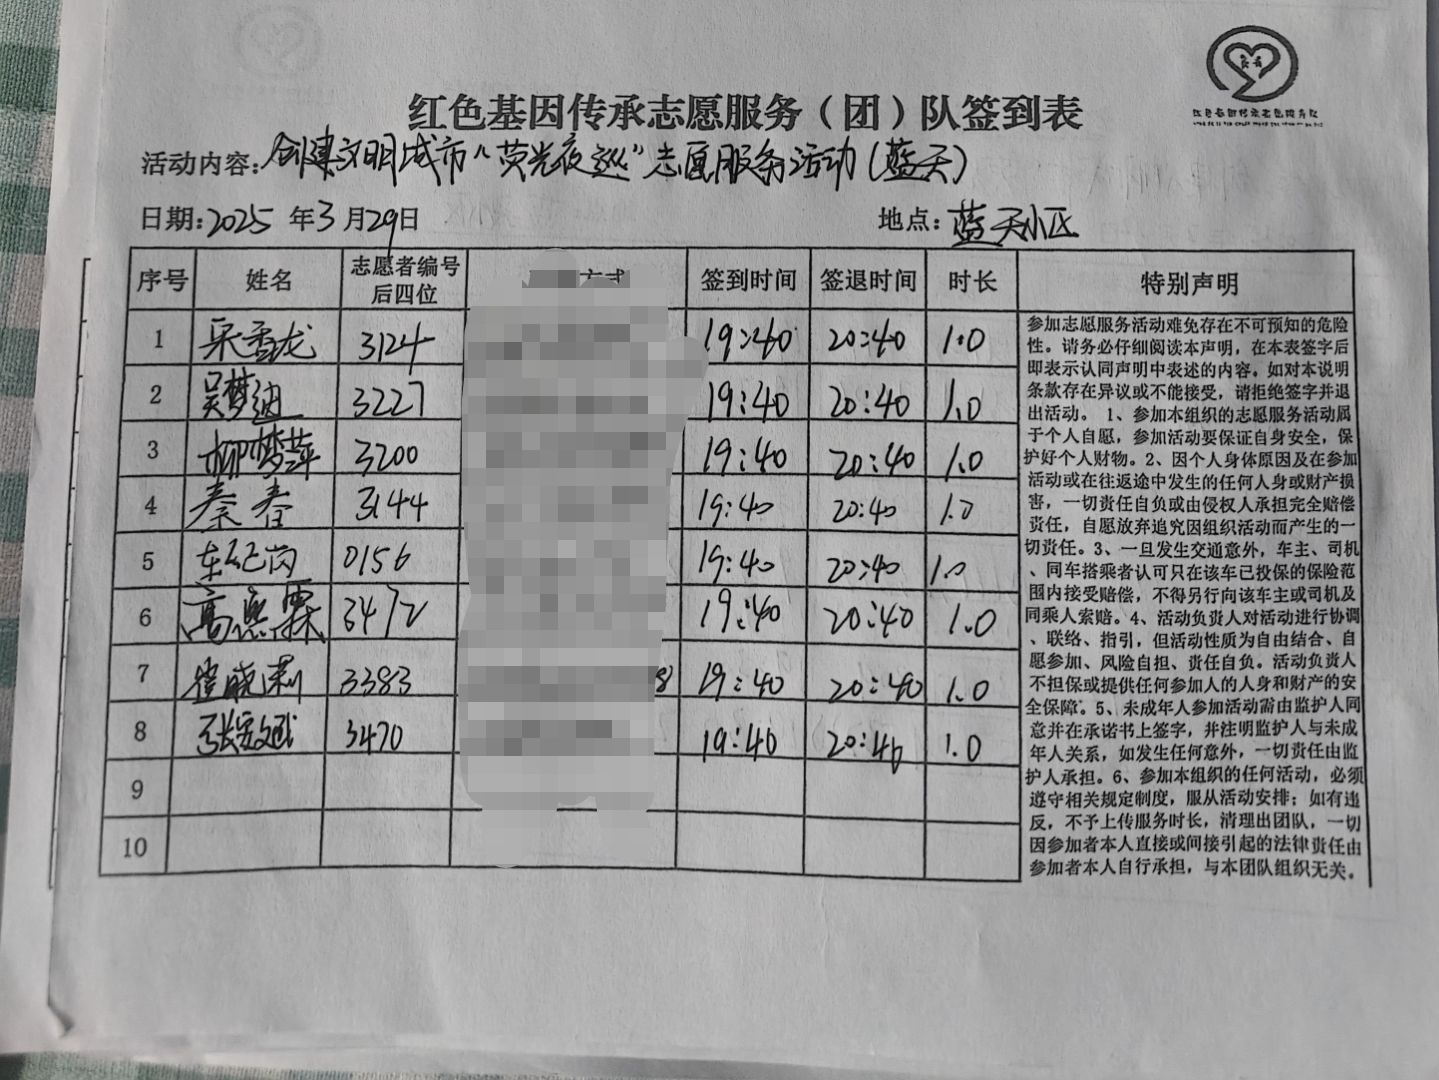 红色基因传承志愿服务（团）队签到表
活动内容：创建文明城市“荧光夜巡”志愿服务活动（蓝天）
日期：2025年3月29日 地点：蓝天小区
序号 姓名 志愿者编号后四位 方式 签到时间 签退时间 时长 特别声明
1 3124 19:40 20:40 1.0
2 吴梦迪 3227 19:40 20:40 1.0
3 柳梦萍 3200 19:40 20:40 1.0
4 秦春 3144 19:40 20:40 1.0
5 0156 19:40 20:40 1.0
6 高 霖 3472 19:40 20:40 1.0
7 晓莉 3383 8) 19:40 20:40 1.0
8 张 3470 19:40 20:40 1.0
9
10
参加志愿服务活动难免存在不可预知的危险
性。请务必仔细阅读本声明，在本表签字后
即表示认同声明中表述的内容。如对本说明
条款存在异议或不能接受，请拒绝签字并退
出活动。 1、参加本组织的志愿服务活动属
于个人自愿，参加活动要保证自身安全，保
护好个人财物。2、因个人身体原因及在参加
活动或在往返途中发生的任何人身或财产损
害，一切责任自负或由侵权人承担完全赔偿
责任，自愿放弃追究因组织活动而产生的一
切责任。3、一旦发生交通意外，车主、司机
、同车搭乘者认可只在该车已投保的保险范
围内接受赔偿，不得另行向该车主或司机及
同乘人索赔。4、活动负责人对活动进行协调
、联络、指引，但活动性质为自由结合、自
愿参加、风险自担、责任自负。活动负责人
不担保或提供任何参加人的人身和财产的安
全保障。5、未成年人参加活动需由监护人同
意并在承诺书上签字，并注明监护人与未成
年人关系，如发生任何意外，一切责任由监
护人承担。6、参加本组织的任何活动，必须
遵守相关规定制度，服从活动安排；如有违
反，不予上传服务时长，清理出团队，一切
因参加者本人直接或间接引起的法律责任由
参加者本人自行承担，与本团队组织无关。